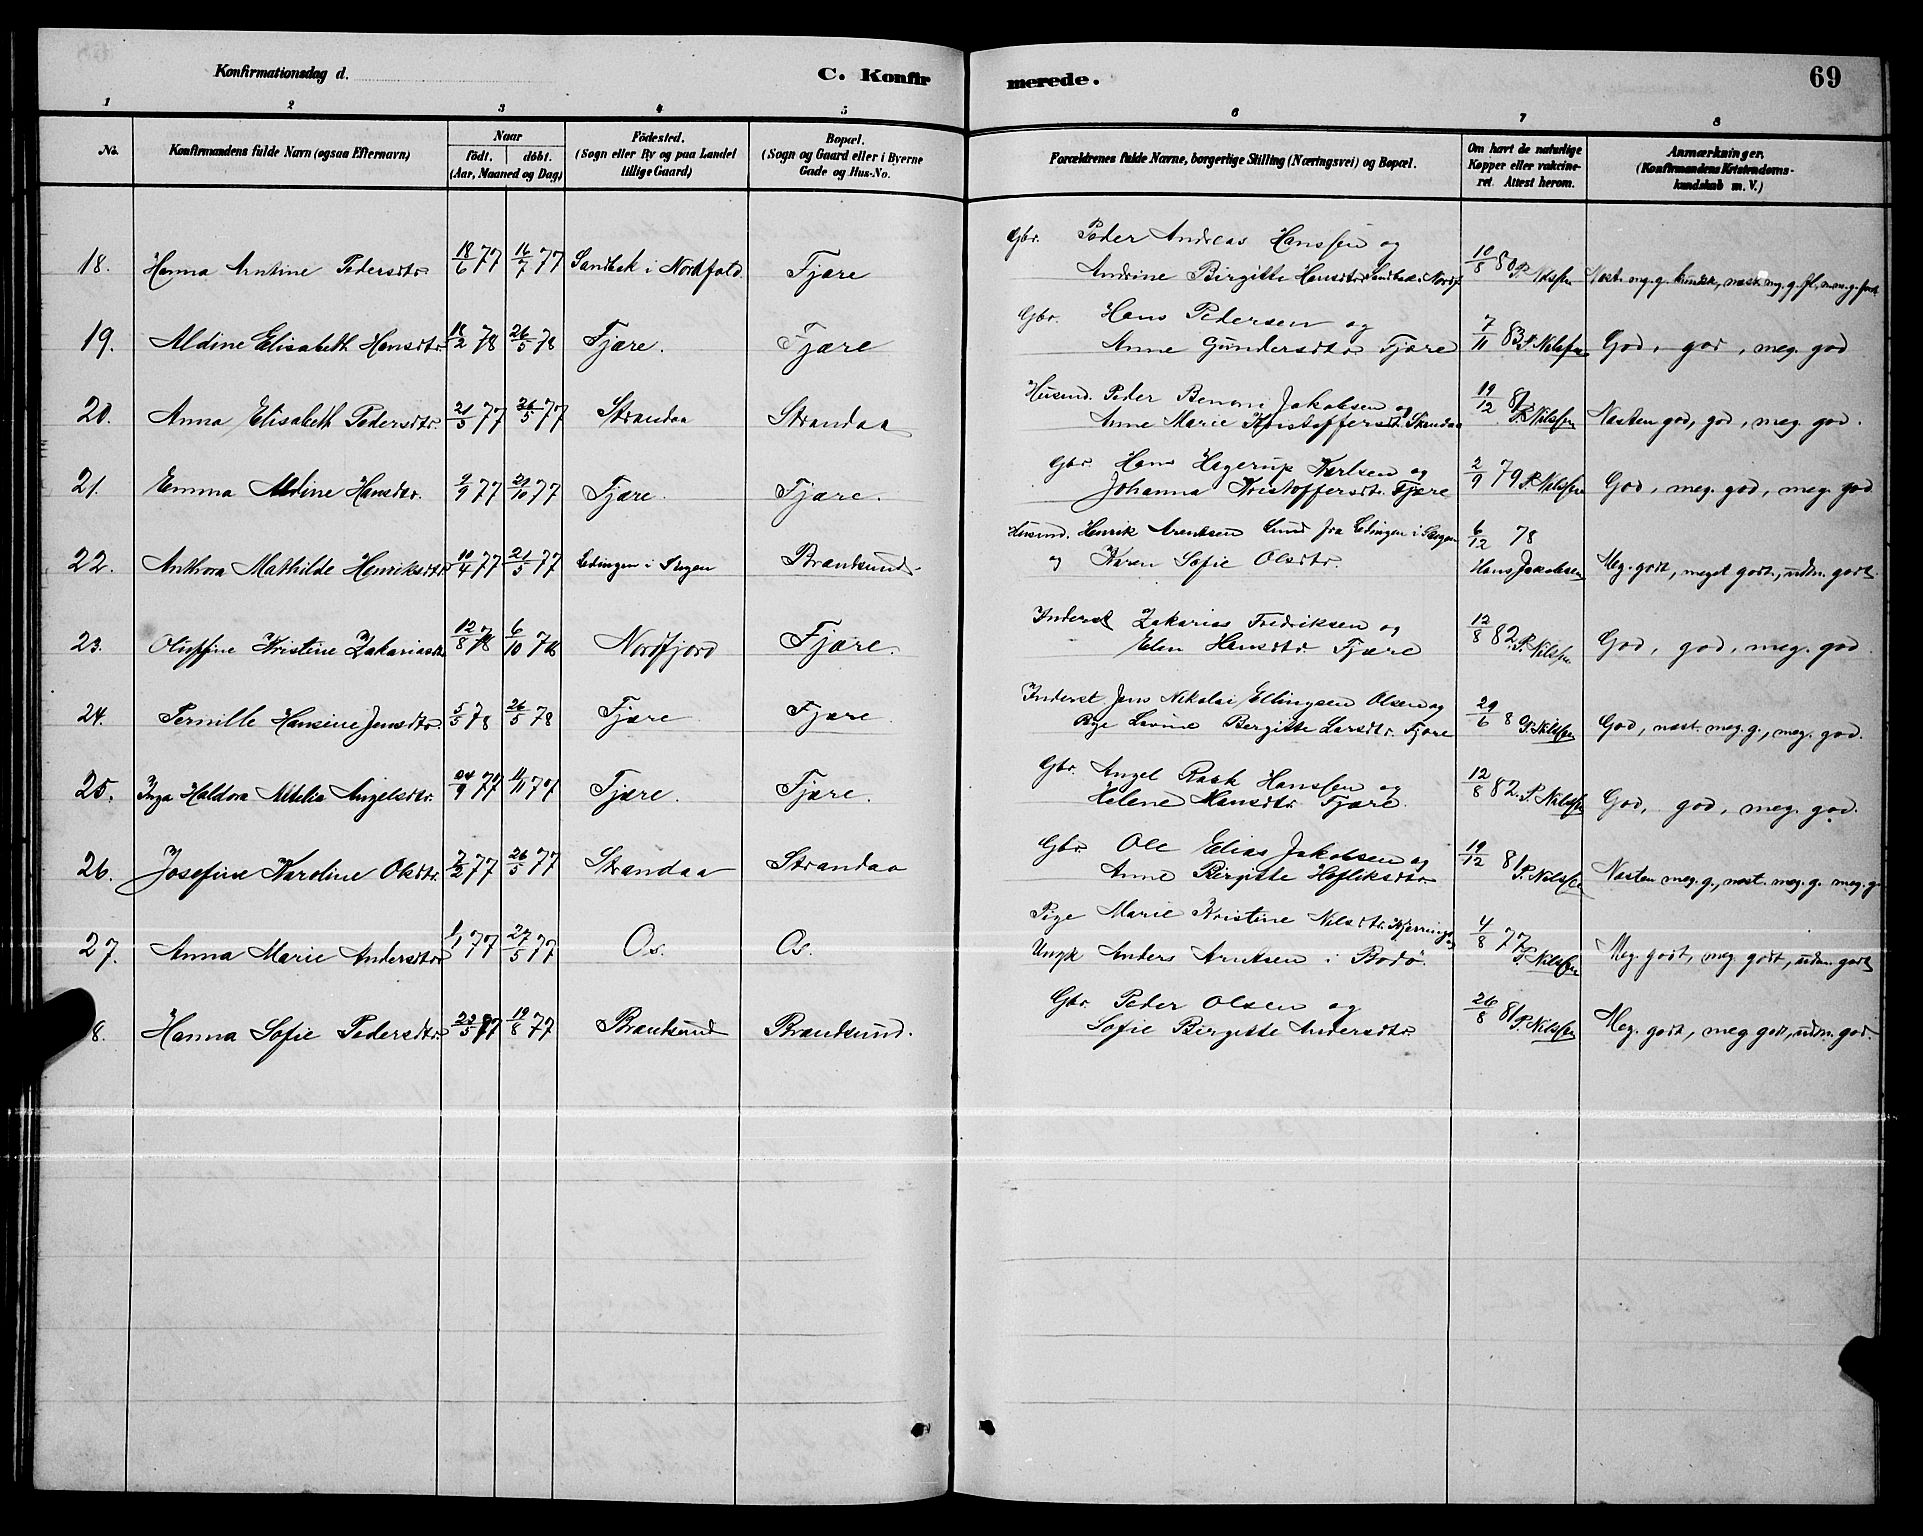 Konfirmationsdag d. C. Konfirmerede. 69
1 2 3 4 5 6 7 8
No. Konfirmandens fulde Navn (ogsaa Efternavn) Naar födt. döbt. (Aar, Maaned og Dag) Födested. (Sogn eller By og paa Landet tillige Gaard) Bopæl. (Sogn og Gaard eller i Byerne Gade og Hus-No. Forældrenes fulde Navne, borgerlige Stilling (Næringsvei) og Bopæl. Om havt de naturlige Kopper eller vakcineret. Attest herom. Anmærkninger. (Konfirmandens Kristendomskundskab m. V.)
Gbr. Peder Andreas Hanssen og
18. Hanna Arntine Pedersdtr. 18/6 77 16/7 77 Sandbak i Nordfold Fjære Andrine Birgitte Hansdtr. Sandbak i Nordf. 10/8 80 P. Nilssen
Gbr. Hans Pedersen og
19. Aldine Elisabeth Hansdtr. 18/2 78 26/5 78 Fjære. Fjære Anne Gundersdtr. Fjære 7/11 83 P. Nilssen God, god, meg. god
Husmd. Peder Benoni Jakobsen og
20. Anna Elisabeth Pedersdtr. 21/3 77 26/5 77 Strandaa Strandaa Anne Marie Kristoffersdtr. Strandaa 19/12 81 P. Nilssen Næsten god, god, meg. god.
Gbr. Hans Hagerup Karlsen og
21. Emma Aldine Hansdtr. 2/9 77 21/10 77 Fjære. Fjære. Johanna Kristoffersdt. Fjære 2/9 79 P. Nilssen God, meg. god, meg. god
Husmd. Henrik Arentsen Lund fra Ledingen i Stegen
22. Anthora Mathilde Henriksdtr. 10/4 77 21/5 77 Ledingen i Stegen Brandsund. og Karen Sofie Olsdtr. 6/12 78 Hans Jakobsen Meg. godt, meget godt, udm. godt.
Inderst Zakarias Fredriksen og
23. Oluffine Kristine Zakariasdtr 12/8 78 6/10 78 Nordfjord Fjære. Elen Hansdtr. Fjære 12/8 82 P. Nilssen God, god, meg. god.
Inderst Jens Nikolai Ellingsen Olsen og
24. Pernille Hansine Jensdtr. 5/5 78 26/5 78 Fjære Fjære Lovine Bergitte Larsdtr. Fjære 29/6 8 P. Nilssen God, næst. meg. g., meg. god.
Gbr. Angel Rask Hanssen og
25. Inga Haldora Angelsdtr. 24/9 77 11/11 77 Fjære. Fjære. Helene Hansdtr. Fjære. 12/8 82. P. Nilssen God, god, meg. god.
Gbr. Ole Elias Jakobsen og
26. Josefine Karoline Olsdtr. 7/2 77 26/5 77 Strandaa Strandaa Anne Birgitte Hefliksdtr. 19/12 81 P. Nilssen Næsten meg. g., næst. meg. g. meg. g.
Pige Marie Kristine Nilsdtr.
27. Anna Marie Andersdtr 1/1 77 27/5 77 Os. Os. Ungk Anders Arntsen i Bodö. 4/8 77 P. Nilssen Meg. godt, meg. godt, udm. godt
Gbr. Peder Olsen og
8. Hanna Sofie Pedersdtr. 23/5 77 19/8 77 Brandsund Brandsund. Sofie Birgitte Andersdtr. 26/8 81 P. Nilssen Meg. godt, meg godt, udm. god.